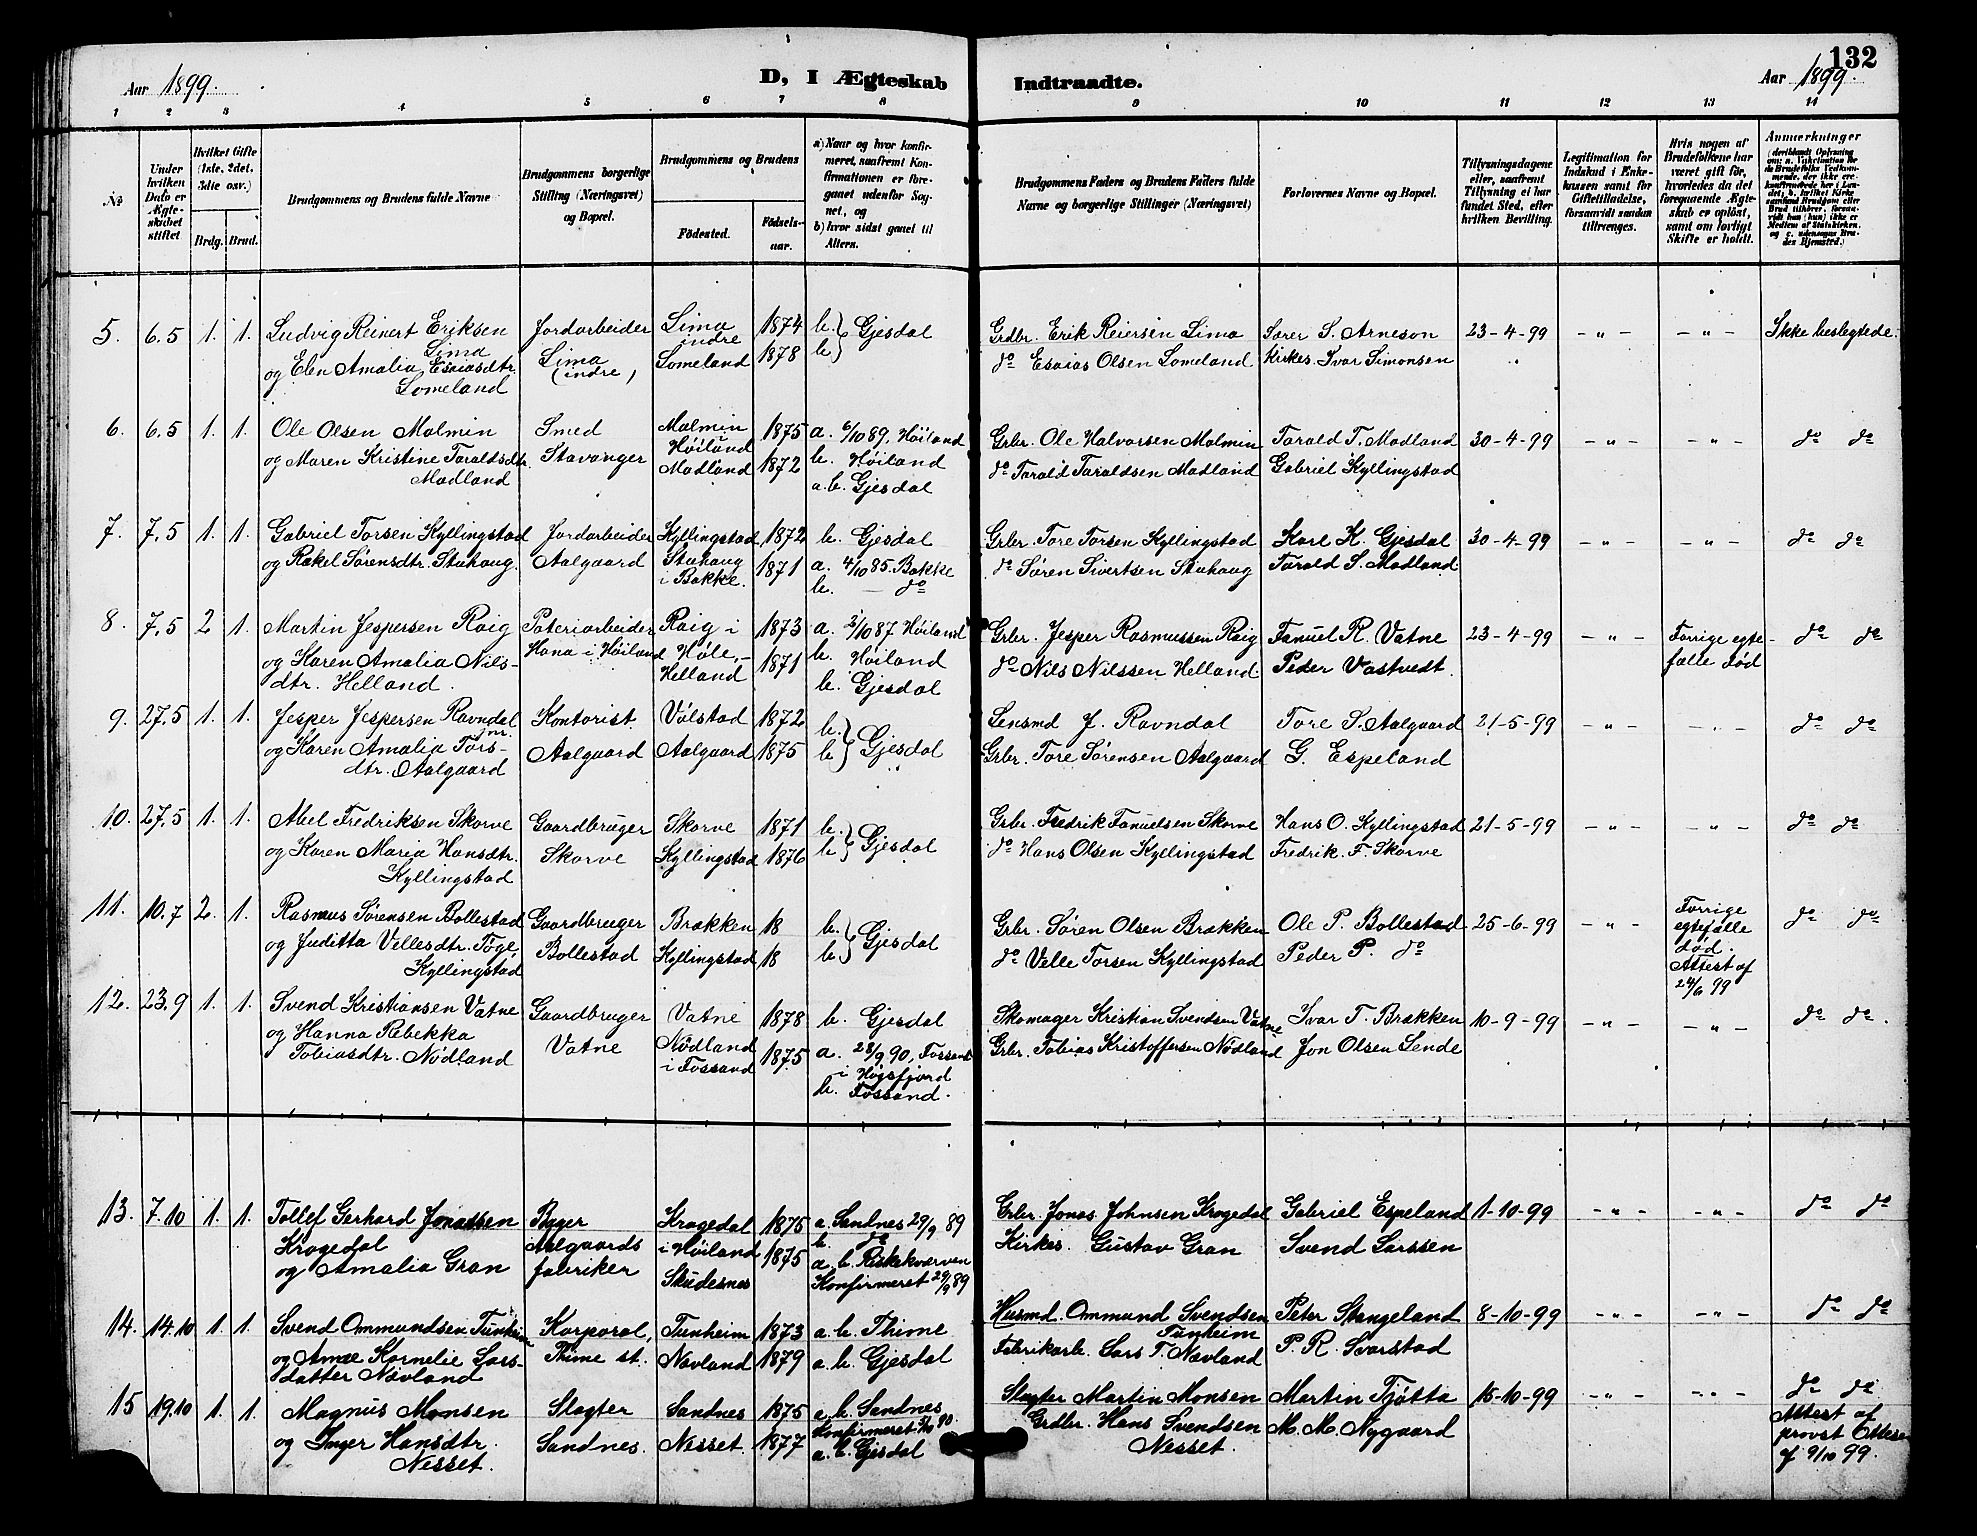 132
Aar 1899. D, I Ægteskab Indtraadte. Aar 1899.
1 2 3 4 5 6 7 8 9 10 11 12 13 14
No
Under hvilken Dato er Ægteskabet stiftet
Hvilket Gifte (1ste, 2det, 3die osv.)
Brdg. Brud.
Brudgommens og Brudens fulde Navne
Brudgommens borgerlige Stilling (Næringsvei) og Bopæl.
Brudgommens og Brudens
Fødested. Fødselsaar.
a) Naar og hvor konfirmeret, saafremt Konfirmationen er foregaaet udenfor Sognet, og
b) hvor sidst gaaet til Alters.
Brudgommens Faders og Brudens Faders fulde Navne og borgerlige Stillinger (Næringsvei)
Forlovernes Navne og Bopæl.
Tillysningsdagene eller, saafremt Tillysning ei har fundet Sted, efter hvilken Bevilling.
Legitimation for Indskud i Enkekassen samt for Giftetilladelse, forsaavidt saadan tiltrænges.
Hvis nogen af Brudefolkene har været gift før, hvorledes da det foregaaende Ægteskab er opløst, samt om lovligt Skifte er holdt.
Anmærkninger
5. 6.5 1. 1. Ludvig Reinert Eriksen Jordarbeider Lima 1874 b. Gjesdal Grdbr. Erik Reiersen Lima Lærer S. Arneson 23-4-99 - " - - " - Ikke beslegtede.
Lima indre
og Elen Amalia Esaiasdtr. Lima Lomeland 1878 b. do Esaias Olsen Lomeland Kirkes. Ivar Simonsen
Lomeland (indre)
6. 6.5 1. 1. Ole Olsen Malmin Smed Malmin 1875 a. 6/10 89. Høiland Grbr. Ole Halvorsen Malmin Tarald T. Madland 30-4-99 - " - - " - do do
Høiland
og Maren Kristine Taraldsdtr. Stavanger Madland 1872 b. Høiland do Tarald Taraldsen Madland Gabriel Kyllingstad
Madland a.b. Gjesdal
7. 7.5 1. 1. Gabriel Torsen Kyllingstad Jordarbeider Kyllingstad 1872 b. Gjesdal Grbr. Tore Torsen Kyllingstad Karl K. Gjesdal 30-4-99 - " - - " - do do
og Rakel Sørensdtr. Stuhaug. Aalgaard Stuhaug 1871 a. 4/10 85. Bakke do Søren Sivertsen Stuhaug Tarald S. Madland
i Bakke. b. - do
8. 7.5 2 1. Martin Jespersen Raig Hana i Høiland Raig i 1873 a. 2/10 87 Høiland Grbr. Jesper Rasmussen Raig Fanuel R. Vatne 23-4-99 - " - Forrige egte- do do
og Karen Amalia Nils- Høle, 1871 b. Høiland do Nils Nilssen Helland Peder Vastvedt. fælle død
dtr. Helland. Helland b. Gjesdal
9. 27.5 1. 1. Jesper Jespersen Ravndal Kontorist Vølstad 1872 b. Gjesdal Lensmd J. Ravndal Tore S. Aalgaard 21-5-99 - " - - " - do do
jnr.
og Karen Amalia Tors- Aalgaard Aalgaard 1875 b. Grbr. Tore Sørensen Aalgaard G. Espeland
dtr. Aalgaard
10. 27.5 1. 1. Abel Fredriksen Skorve Gaardbruger Skorve 1871 b. Gjesdal Grbr. Fredrik Fanuelsen Skorve Hans O. Kyllingstad 21-5-99 - " - - " - do do
og Karen Maria Hansdtr. Skorve Kyllingstad 1876 b. do Hans Olsen Kyllingstad Fredrik. F. Skorve
Kyllingstad
11. 10.7 2. 1. Rasmus Sørensen Bollestad Gaardbruger Brækken 18 b. Gjesdal Grbr. Søren Olsen Brækken Ole P. Bollestad 25-6-99 - " - Forrige egtefælle død. do do
og Juditta Vellesdtr. Tøge, Bollestad Kyllingstad 18 b. do Velle Torsen Kyllingstad Peder P. do Attest af
Kyllingstad 24/6 99
12. 23.9 1. 1. Svend Kristiansen Vatne Gaardbruger Vatne 1878 b. Gjesdal Skomager Kristian Svendsen Vatne Ivar T. Brækken 10-9-99 - " - - " - do do.
og Hanna Rebekka Vatne Nødland 1875 a. 28/9 90, Fossand Grbr. Tobias Kristoffersen Nødland Jon Olsen Lende
Tobiasdtr. Nødland i Fossand i Høgsfjord
b. Fossand.
13. 7.10 1. 1. Tollef Gerhard Jonassen Bager Krogedal 1875 a. Sandnes 29/9 89 Grbr. Jonas Johnsen Krogedal Gabriel Espeland 1-10-99 - " - - " - do do
Krogedal Aalgaards i Høiland b. do Kirkes. Gustav Gran Svend Larssen
og Amalia Gran fabriker Skudesnes 1875 a. b. Riskekværven
Konfirmeret 29/9 89
14. 14.10 1. 1. Svend Ommundsen Tunheim Korporal, Tunheim 1873 a. b. Thime Husmd. Ommund Svendsen Peter Stangeland 8-10-99 - " - - " - do do
Tunheim
og Anne Kornelie Lars- Thime st. Navland 1879 a. b. Gjesdal Fabrikarb. Lars T. Navland P. R. Svarstad
datter Navland
15 19.10 1. 1. Magnus Monsen Slagter Sandnes 1875 a. b. Sandnes Slagter Martin Monsen Martin Tjøtta 15-10-99 - " - - " - do do
Konfirmeret 90
og Inger Hansdtr. Sandnes. Nesset. 1877 a. b. Gjesdal Grdbr. Hans Svendsen M. M. Nygaard Attest af
Nesset. Nesset. provst
af 9/10 99.